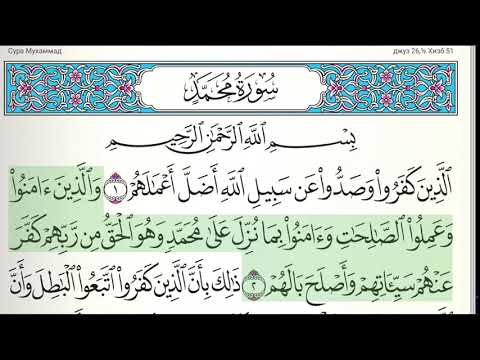 Сура Мухаммад
джуз 26,¾ Хизб 51
سُورَةُ مُحَمَّدٍ
بِسْمِ ٱللَّهِ ٱلرَّحْمَٰنِ ٱلرَّحِيمِ
ٱلَّذِينَ كَفَرُوا۟ وَصَدُّوا۟ عَن سَبِيلِ ٱللَّهِ أَضَلَّ أَعْمَٰلَهُمْ ١ وَٱلَّذِينَ ءَامَنُوا۟
وَعَمِلُوا۟ ٱلصَّٰلِحَٰتِ وَءَامَنُوا۟ بِمَا نُزِّلَ عَلَىٰ مُحَمَّدٍ وَهُوَ ٱلْحَقُّ مِن رَّبِّهِمْ كَفَّرَ
عَنْهُمْ سَيِّـَٔاتِهِمْ وَأَصْلَحَ بَالَهُمْ ٢ ذَٰلِكَ بِأَنَّ ٱلَّذِينَ كَفَرُوا۟ ٱتَّبَعُوا۟ ٱلْبَٰطِلَ وَأَنَّ